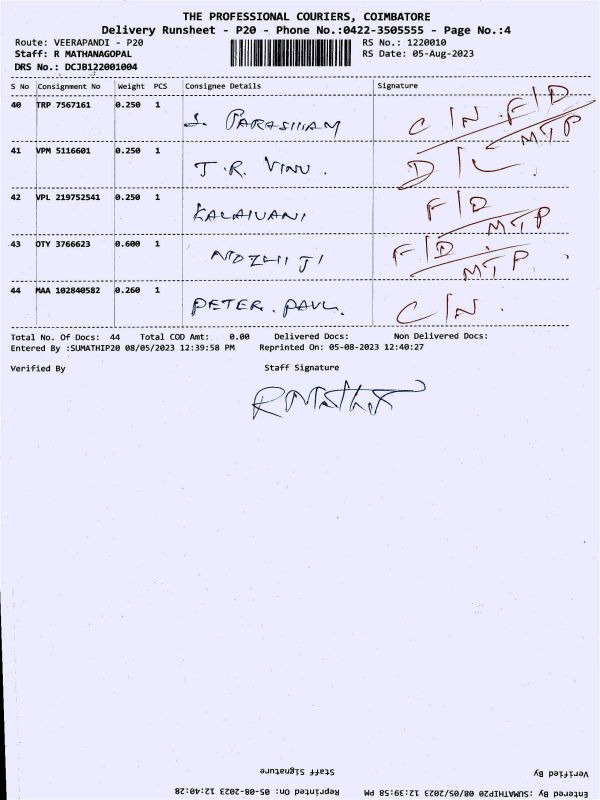 THE PROFESSIONAL COURIERS, COIMBATORE
Delivery Runsheet - P20 - Phone No.:0422-3505555 - Page No.:4
Route: VEERAPANDI - P20 RS No.: 1220010
Staff: R MATHANAGOPAL RS Date: 05-Aug-2023
DRS No.: DCJB122001004
S No Consignment No Weight PCS Consignee Details Signature
40 TRP 7567161 0.250 1
C/N F/D
MTP
41 VPM 5116601 0.250 1
T.R. VINU. D/L
42 VPL 219752541 0.250 1
KALAIVANI F/D
MTP
43 OTY 3766623 0.600 1
F/D.
MTP.
44 MAA 102840582 0.260 1
PETER. PAUL. C/N.
Total No. Of Docs: 44 Total COD Amt: 0.00 Delivered Docs: Non Delivered Docs:
Entered By :SUMATHIP20 08/05/2023 12:39:58 PM Reprinted On: 05-08-2023 12:40:27
Verified By Staff Signature
Staff Signature Verified By
Entered By :SUMATHIP20 08/05/2023 12:39:58 PM Reprinted On: 05-08-2023 12:40:28